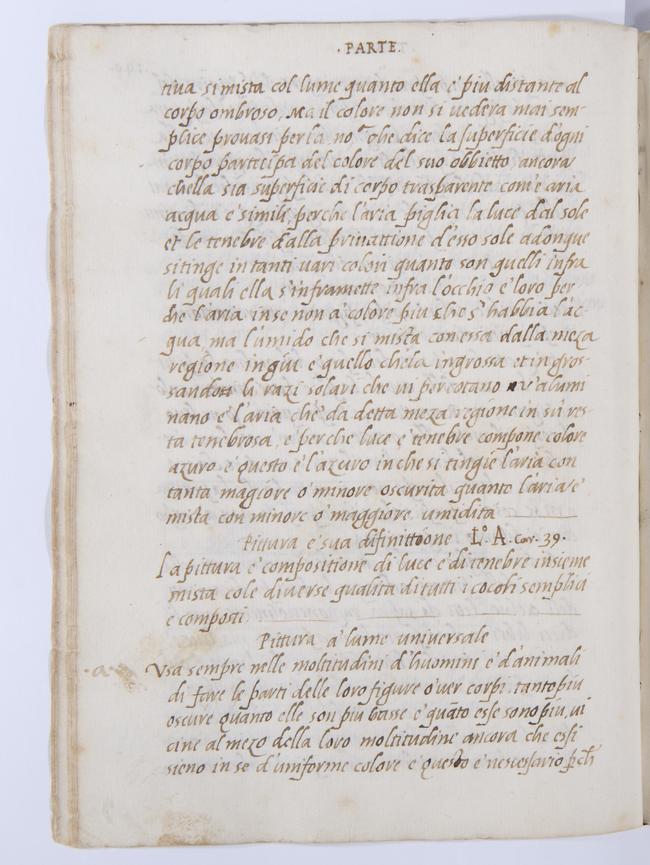 · PARTE.
tiva si mista col lume quanto ella e piu distante al
corpo ombroso, Ma il colore non si vedera mai sem-
plice provasi per la no.a che dice la superficie d'ogni
corpo partecipa del colore del suo obbietto, ancora
chella sia superficie di corpo trasparente com'e aria
acqua e simili, perche l'aria piglia la luce dal sole
et le tenebre dalla privattione d'esso sole adonque
si tinge in tanti vari colori quanto son quelli infra
li quali ella s'inframette infra l'occhio e loro per
che l'aria in se non a colore piu che s'habbia l'ac-
qua, ma l'umido che si mista con essa dalla meza
regione in giu e quello chela ingrossa et ingros-
sando li razi solari che vi percotano v'alumi
nano e l'aria che da detta meza regione in sù res-
ta tenebrosa, e perche luce e tenebre compone colore
azuro e questo e l'azuro in che si tingie l'aria con
tanta magiore o minore oscurita quanto l'aria e
mista con minore o maggiore umidita
Pittura e sua difinittione L.o A. car. 39.
La pittura e compositione di luce e di tenebre insieme
mista cole diverse qualita di tutti i cocori semplici
e composti
Pittura a lume universale
· a ·
Usa sempre nelle moltitudini d'huomini e d'animali
di fare le parti delle loro figure o ver corpi, tanto piu
oscure quanto elle son piu basse e quāto esse sono piu, vi
cine al mezo della loro moltitudine ancora che essi
sieno in se d'uniforme colore e questo e nescessario p̄ch